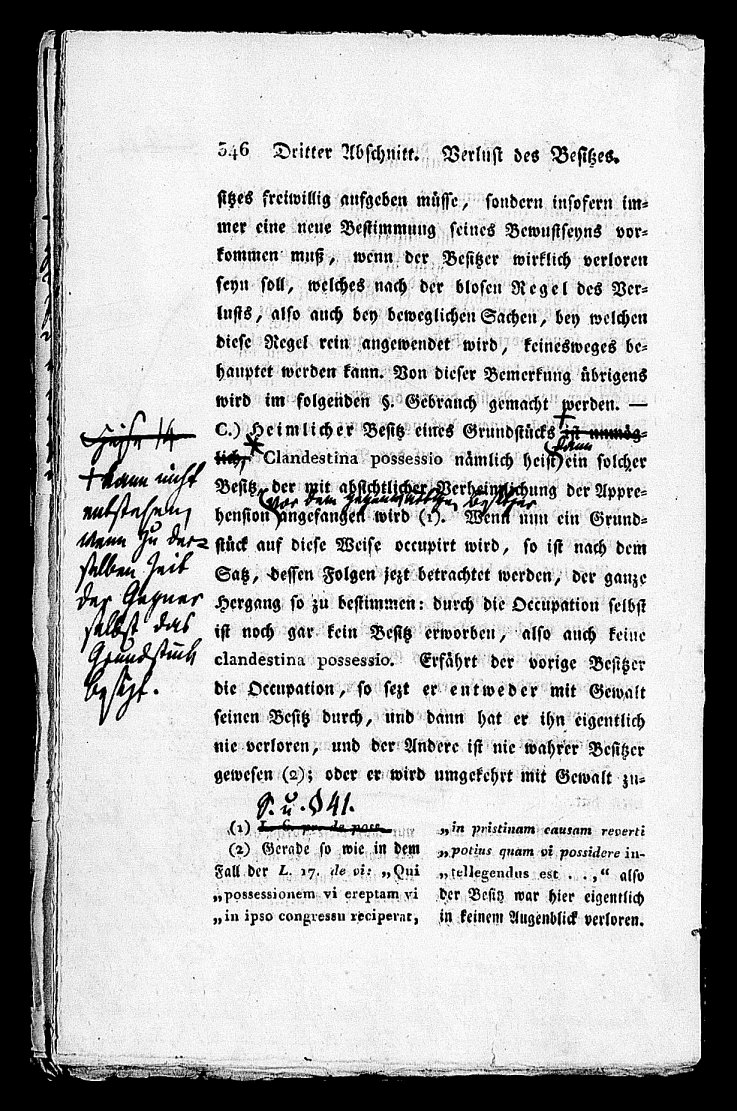 346 Dritter Abschnitt. Verlust des Besitzes.
sitzes freiwillig aufgeben müsse, sondern insofern im-
mer eine neue Bestimmung seines Bewustseyns vor-
kommen muß, wenn der Besitzer wirklich verloren
seyn soll, welches nach der blosen Regel des Ver-
lusts, also auch bey beweglichen Sachen, bey welchen
diese Regel rein angewendet wird, keinesweges be-
hauptet werden kann. Von dieser Bemerkung übrigens
wird im folgenden §. Gebrauch gemacht werden. —
C.) Heimlicher Besitz eines Grundstücks ist unmög-
lich. Clandestina possessio nämlich heist ein solcher
Besitz, der mit absichtlicher Verheimlichung der Appre-
vor dem gegenwärtigen Besitzer
hension angefangen wird (1). Wenn nun ein Grund-
stück auf diese Weise occupirt wird, so ist nach dem
Satz, dessen Folgen jezt betrachtet werden, der ganze
Hergang so zu bestimmen: durch die Occupation selbst
ist noch gar kein Besitz erworben, also auch keine
clandestina possessio. Erfährt der vorige Besitzer
die Occupation, so sezt er entweder mit Gewalt
seinen Besitz durch, und dann hat er ihn eigentlich
nie verloren, und der Andere ist nie wahrer Besitzer
gewesen (2); oder er wird umgekehrt mit Gewalt zu-
+ kann nicht
entstehen,
wenn zu der-
selben Zeit
der Gegner
selbst das
Grundstück
besizt.
S. u. § 41.
(1) L. 6. pr. de poss.
(2) Gerade so wie in dem
Fall der L. 17. de vi: „Qui
„possessionem vi ereptam vi
„in ipso congressu reciperat,
„in pristinam causam reverti
„potius quam vi possidere in-
„tellegendus est . . ,“ also
der Besitz war hier eigentlich
in keinem Augenblick verloren.